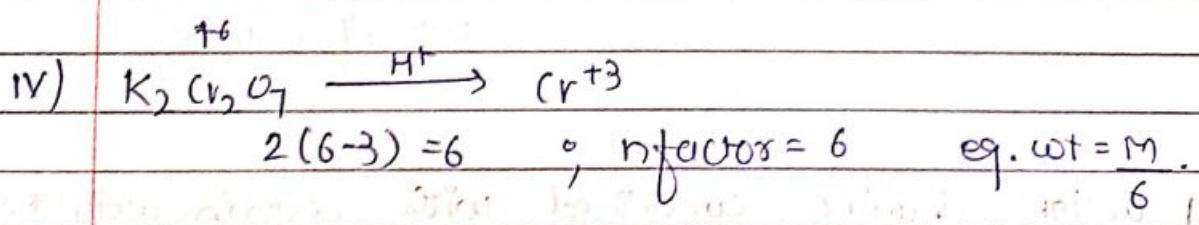 +6
IV) K₂Cr₂O₇ —H⁺→ Cr⁺³
2(6-3) = 6 ; nfactor = 6 eq. wt = M/6.